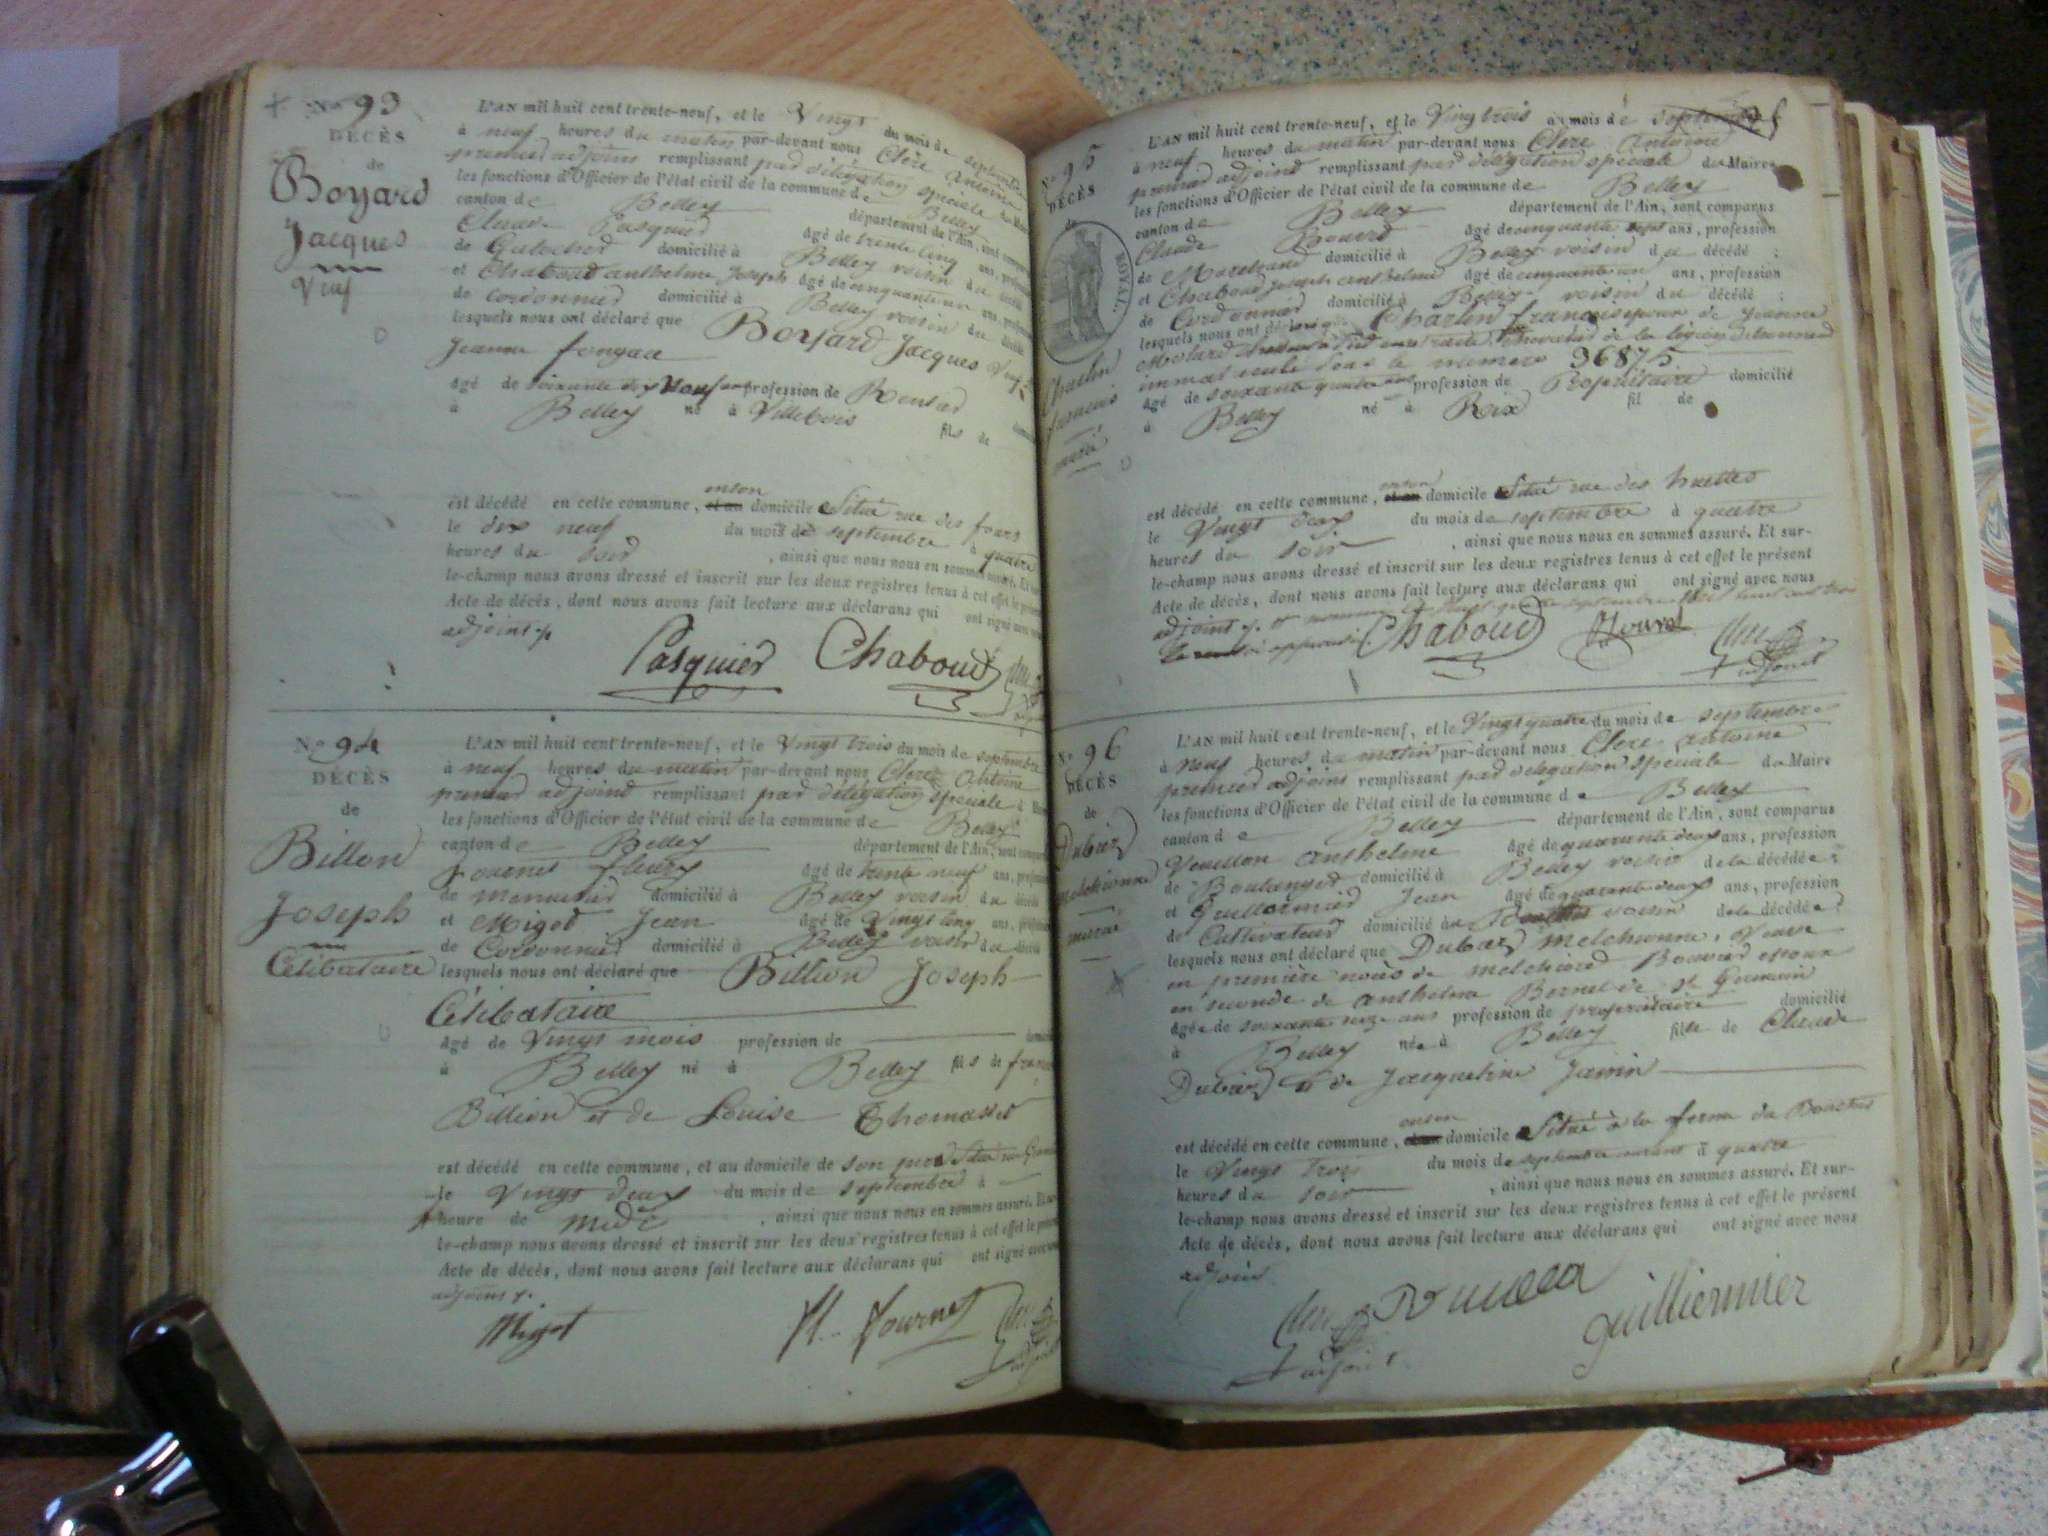 No 93
DÉCÈS
de
Boyard
Jacques
Veuf
L'AN mil huit cent trente-neuf, et le Vingt du mois de septembre
à neuf heures du matin par-devant nous Clerc Antoine
premier adjoint remplissant par délégation speciale du Maire
les fonctions d'Officier de l'état civil de la commune de Belley
canton de Belley département de l'Ain, sont comparus
Claude Pasquier âgé de trente cinq ans, profession
de domicilié à Belley voisin du décédé
et Chaboud anthelme Joseph âgé de cinquante un ans, profession
de cordonnier domicilié à Belley voisin du décédé
lesquels nous ont déclaré que Boyard Jacques Veuf de
Jeanne
âgé de soixante dix neuf ans profession de Rentier
à Belley né à Villebois fils de
est décédé en cette commune, en son domicile Situé rue des fours
le dix neuf du mois de septembre à quatre
heures du soir , ainsi que nous nous en sommes assuré. Et sur-
le-champ nous avons dressé et inscrit sur les deux registres tenus à cet effet le présent
Acte de décès, dont nous avons fait lecture aux déclarans qui ont signé avec nous
adjoint
Pasquier Chaboud
No 94
DÉCÈS
de
Billon
Joseph
Célibataire
L'AN mil huit cent trente-neuf, et le Vingt trois du mois de septembre
à neuf heures du matin par-devant nous Clerc Antoine
premier adjoint remplissant par délégation speciale
les fonctions d'Officier de l'état civil de la commune de Belley
canton de Belley département de l'Ain, sont comparus
fournet fleury âgé de trente neuf ans, profession
de Menuisier domicilié à Belley voisin du décédé
et Migot Jean âgé de Vingt cinq ans, profession
de Cordonnier domicilié à Belley voisin du décédé
lesquels nous ont déclaré que Billion Joseph
Célibataire
âgé de Vingt mois profession de
à Belley né à Belley fils de
Billion et de Louise Thomasset
est décédé en cette commune, et au domicile de son père Situé
le Vingt deux du mois de septembre à
heure de midi , ainsi que nous nous en sommes assuré. Et sur-
le-champ nous avons dressé et inscrit sur les deux registres tenus à cet effet le présent
Acte de décès, dont nous avons fait lecture aux déclarans qui ont signé avec nous
adjoint
Migot fournet
No 95
DÉCÈS
de
ROYAL
Charlin
francois
marié
L'AN mil huit cent trente-neuf, et le Vingt trois du mois de septembre
à neuf heures du matin par-devant nous Clerc Antoine
premier adjoint remplissant par délégation speciale du Maire
les fonctions d'Officier de l'état civil de la commune de Belley
canton de Belley département de l'Ain, sont comparus
Claude âgé de cinquante sept ans, profession
de domicilié à Belley voisin du décédé ;
et Chaboud Joseph anthelme âgé de cinquante un ans, profession
de Cordonnier domicilié à Belley voisin du décédé ;
lesquels nous ont déclaré que Charlin francois époux de Jeanne
en retraite, Chevalier de la légion d'honneur
sous le numero 36875
âgé de soixante quatre ans profession de Propriétaire domicilié
à Belley né à Reix fil de
est décédé en cette commune, en son domicile Situé rue des
le Vingt deux du mois de septembre à quatre
heures du soir , ainsi que nous nous en sommes assuré. Et sur-
le-champ nous avons dressé et inscrit sur les deux registres tenus à cet effet le présent
Acte de décès, dont nous avons fait lecture aux déclarans qui ont signé avec nous
adjoint
Chaboud
adjoint
No 96
DÉCÈS
de
Dubiez
melchionne
mariée
L'AN mil huit cent trente-neuf, et le Vingt quatre du mois de septembre
à neuf heures du matin par-devant nous Clerc antoine
premier adjoint remplissant par délégation speciale du Maire
les fonctions d'Officier de l'état civil de la commune de Belley
canton de Belley département de l'Ain, sont comparus
anthelme âgé de quarante deux ans, profession
de Boulanger domicilié à Belley voisin de la décédée ;
et Guillermier Jean âgé de quarante deux ans, profession
de Cultivateur domicilié voisin de la décédée ;
lesquels nous ont déclaré que Dubiez melchionne, Veuve
en première noces de melchior Bouvier
en seconde de anthelme Bernet de St Germain
âgée de soixante seize ans profession de propriétaire domicilié
à Belley née à Belley fille de Claude
Dubiez et de Jacqueline Janin
est décédé en cette commune, en son domicile Situé à la ferme du
le Vingt trois du mois de septembre courant à quatre
heures du soir , ainsi que nous nous en sommes assuré. Et sur-
le-champ nous avons dressé et inscrit sur les deux registres tenus à cet effet le présent
Acte de décès, dont nous avons fait lecture aux déclarans qui ont signé avec nous
adjoint
guilliermier
adjoint